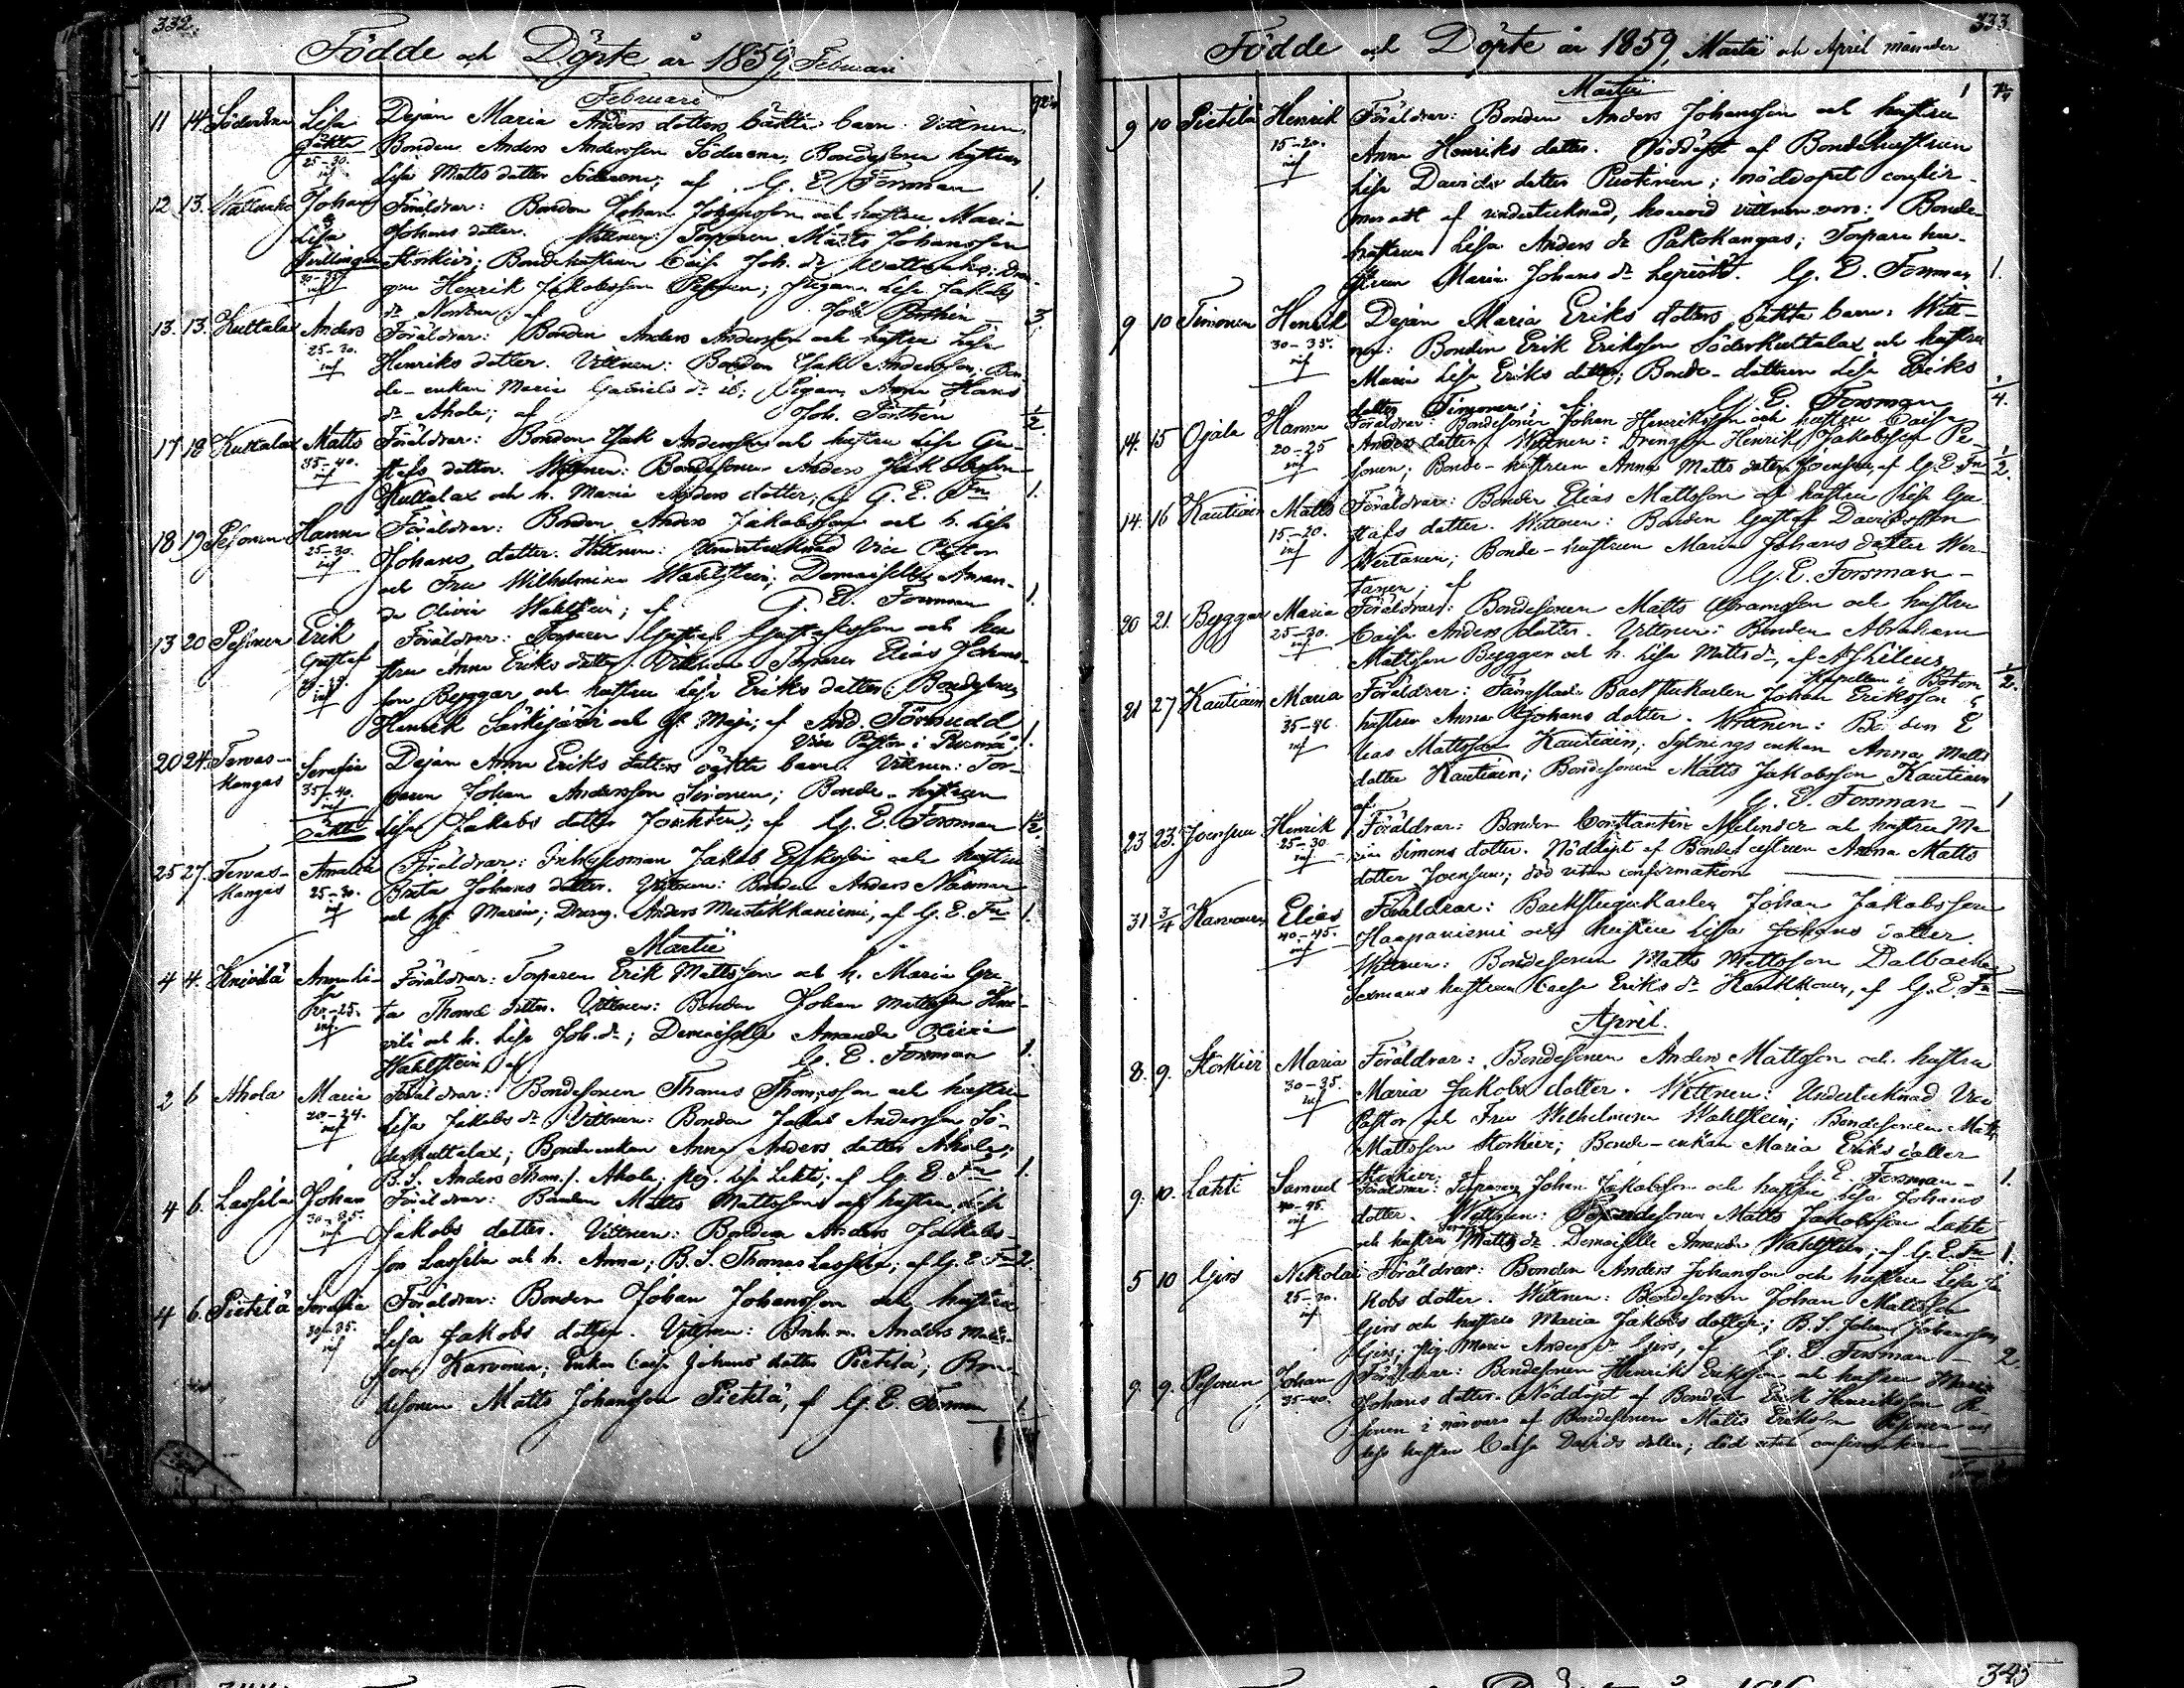 332.
Födde och Döpte år 1859, Februari
Februari
11 14 Söderena Lisa Dejan Maria Anders dotters oäkta barn: Vittnen
oäkta Bonden Anders Andersson Söderena, Bondesona hustrun
25-30. Lisa Matts dotter Söderena; af G. E. Forsman 1.
12 13. Johan Föräldrar: Bonden Johan Johansson och hustru Maria
& Johans dotter. Vittnen: Torparen Matts Johansson
Lisa
Tvillingar Storkivi; Bondehustrun Caisa Joh. dr
30-35. gen Henrik Jakobsson Pesonen; Pigan Lisa Jakobs
dr af Joh. 3.
13. 13. Kuttalax Anders Föräldrar: Bonden Anders Andersson och hustru Lisa
25-30. Henriks dotter. Vittnen: Bonden Isak Andersson; Bon
de-enkan Maria Gabriels dr ib; Pigan Anna Hans
dr Ahola; af Joh. 1/2.
17 18 Kuttalax Matts Föräldrar: Bonden Isak Andersson och hustru Lisa Gu
35-40. stafs dotter. Vittnen: Bondesonen Anders Jakobsson
Kuttalax och h. Maria Anders dotter; af G. E. Fn 1.
18 19 Pesonen Hanna Föräldrar: Bonden Anders Jakobsson och h. Lisa
25-30. Johans dotter. Vittnen: Undertecknad Vice Pastor
och Fru Wilhelmina Wahlstein; Demoiselle Aman-
da Olivia Wahlstein; af G. E. Forsman 1.
13 20 Pesonen Erik Föräldrar: Torparen Gustaf Gustafsson och hu
Gustaf stru Anna Eriks dotter. Vittnen: Torparen Elias Johans-
son Byggar och hustrun Lisa Eriks dotter; Bondesonen
Henrik Särkijärvi och h. Maja; af And. Törnudd
Vice Pastor i 1.
20 24. Terwas- Serafia Dejan Anna Eriks dotters oäkta barn. Vittnen: Tor-
kangas 35-40. paren Johan Andersson Simonen; Bonde-hustrun
oäkta Lisa Jakobs dotter af G. E. Forsman 1/2.
25 27. Terwas- Amalia Föräldrar: Inhysesman Jakob och hustru
kangas 25-30. Greta Johans dotter. Vittnen: Bonden Anders
och h. Maria; Dreng. Anders Mustikkaniemi, af G. E. Fn 1.
Martii
4 4. Knivilä Anna Li- Föräldrar: Torparen Erik Mattsson och h. Maria Gre
sa
20-25. ta Thomæ dotter. Vittnen: Bonden Johan Mattsson Kni-
vilä och h. Lisa Joh. dr; Demoiselle Amanda Olivia
Wahlstein, af G. E. Forsman 1.
2 6 Ahola Maria Föräldrar: Bondesonen Thomas Thomasson och hustrun
20-24. Lisa Jakobs dr Vittnen: Bonden Jakob Andersson Sö-
derkuttalax; Bonde enkan Anna Anders dotter Ahola;
B.S. Anders Thom.s. Ahola; pig. Lisa Lahti; af G. E. Fn 1.
4 6. Lassila Johan Föräldrar: Bonden Matts Mattsson och hustrun Lisa
30-35. Jakobs dotter. Vittnen: Bonden Anders Jakobs-
son Lassila och h. Anna; B. S. Thomas Lassila; af G. E. Fn 2.
4 6. Pietilä Serafia Föräldrar: Bonden Johan Johansson och hustru
30-35. Lisa Jakobs dotter. Vittnen: Anders Matts-
son Karvonen; Enkan Caisa Johans dotter Pietilä; Bon-
desonen Matts Johansson Pietilä, af G. E. Forsman 1.
333
Födde och Döpte år 1859, Martii och April månader
Martii
9 10 Pietilä Henrik Föräldrar: Bonden Anders Johansson och hustru
15-20. Anna Henriks dotter. Nöddöpt af Bondehustrun
Lisa Davids dotter Puotinen; nöddopet confir-
meradt af undertecknad, hvarvid vittnen voro: Bonde-
hustrun Lisa Anders dr Pakokangas; Torpare hu-
strun Maria Johans dr G. E. Forsman 1.
9 10 Timonen Henrik Dejan Maria Eriks dotters oäkta barn: Witt-
30-35. nen: Bonden Erik Eriksson Söderkuttalax och hustru
Maria Lisa Eriks dotter; Bonde-dottren Lisa Eriks
dotter Timonen; af G. E. Forsman 1/4.
14. 15 Ojala Hanna Föräldrar: Bondesonen Johan Henriksson och hustru Caisa
20-25 Anders dotter. Wittnen: Drengen Henrik Jakobsson Pe-
sonen; Bonde-hustrun Anna Matts dotter Joensuu, af G. E. Fn 1/2.
14. 16 Kautiain Matts Föräldrar: Bonden Elias Mattsson och hustru Lisa Gu
15-20. stafs dotter. Wittnen: Bonden Gustaf Davidsson
Wertanen; Bonde-hustrun Maria Johans dotter Wer-
tanen; af G. E. Forsman -
20 21. Byggar Maria Föräldrar: Bondesonen Matts Abramsson och hustru
25-30. Caisa Anders dotter. Vittnen: Bonden Abraham
Mattsson Byggar och h. Lisa Matts dr, af
Kapellan i 1/2.
21 27 Kautiain Maria Föräldrar: Backstukarlen Johan Eriksson &
35-40 hustrun Anna Johans dotter. Vittnen: Bonden E
lias Mattsson Kautiain; Sytnings enkan Anna Matts
dotter Kautiain; Bondesonen Matts Jakobsson Kautiain
af G. E. Forsman - 1
23 23. Joensuu Henrik Föräldrar: Bonden Constantin Melender och hustru Ma
25-30 ria Simons dotter. Nöddöpt af Bondehustrun Anna Matts
dotter Joensuu; död utan confirmation
31 3/4 Karvonen Elias Föräldrar: Backstugukarlen Johan Jakobsson
40-45. Haapaniemi och hustru Lisa Johans dotter.
Wittnen: Bondesonen Matts Mattsson Dalbacka
Sexmans hustrun Caisa Eriks dr af G. E. Fn
April.
8. 9. Storkivi Maria Föräldrar: Bondesonen Anders Mattsson och hustru
30-35. Maria Jakobs dotter. Wittnen: Undertecknad Vice
Pastor och Fru Wilhelmina Wahlstein; Bondesonen Matts
Mattsson Storkivi; Bonde-enkan Maria Eriks dotter
Storkivi; af G. E. Forsman - 1.
9. 10. Lahti Samuel Föräldrar: Torparen Johan Jakobsson och hustru Lisa Johans
40-45. dotter. Wittnen: Matts Jakobsson Lahti
och hustru Matts dr. Demoiselle Amanda Wahlstein; af G. E. Fn 1.
5 10 Girs Nikolai Föräldrar: Bonden Anders Johansson och hustru Lisa Ja
25-30. kobs dotter. Wittnen: Bondesonen Johan Mattsson
Girs och hustru Maria Jakobs dotter; B. S. Johan Johansson
Girs; pig. Maria Anders dr Girs, af G. E. Forsman - 2.
9. 9. Pesonen Johan Föräldrar: Bondesonen Henrik Eriksson och hustru Maria
35-40. Johans dotter. Nöddöpt af Bonden Erik Henriksson Pe
sonen i närvaro af Bondesonen Matts Eriksson Pesonen och
dess hustru Caisa Davids dotter; död utan confirmation
345